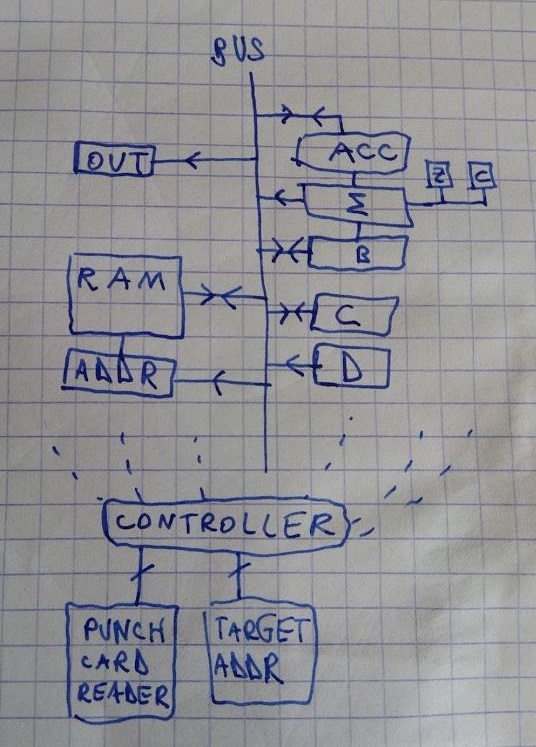 BUS
ACC
OUT
Z
C
Σ
B
RAM
C
ADDR
D
CONTROLLER
PUNCH
CARD
READER
TARGET
ADDR